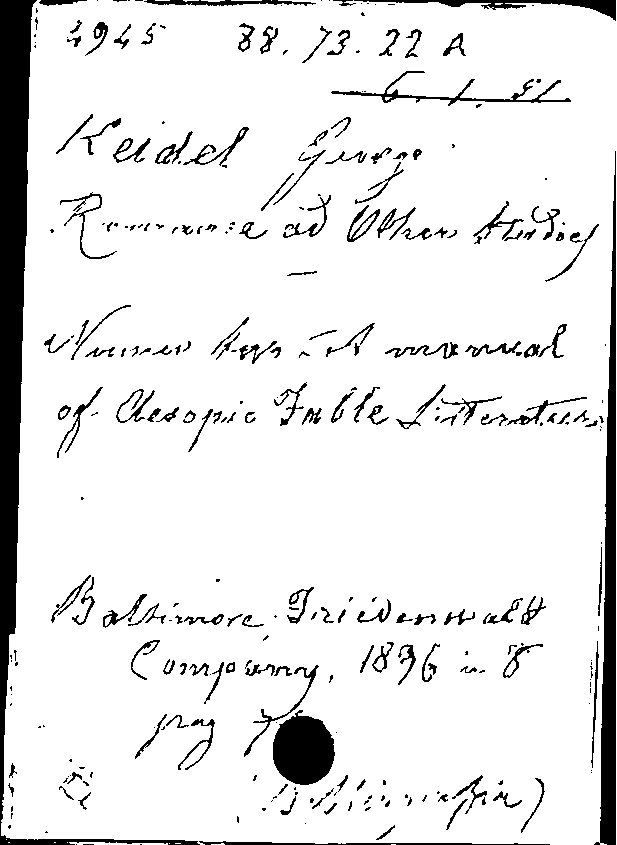 4945 88. 73. 22 A
6. 1. 51
Keidel George
Romance ad Other Studies
Numer two - A manual
of Aesopic Fable Literature
Baltimore, Friedenwald
Company, 1896 in 8
pag 7